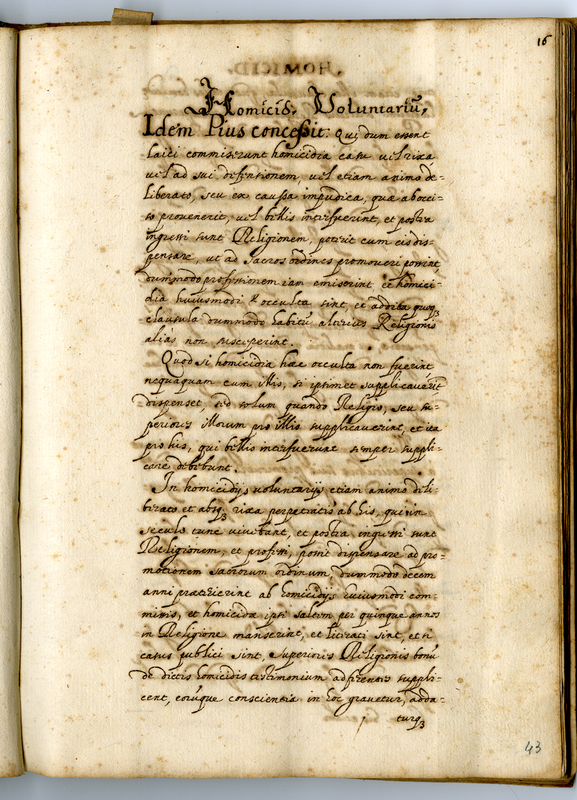 16
HOMICID.
Homicid. Voluntariũ,
Idem Pius concessit: Qui dum essent
laici commiserunt homicidia casu vel rixa
vel ad sui defensionem, vel etiam animo de-
liberato, seu ex caussa impudica, qua abocci-
so provenerit, vel bellis interfuerint, et postea
ingressi sunt Religionem, poterit cum eis dis-
pensare, ut ad Sacros ordines promoveri possint,
dummodo professionem iam emiserint, et homici-
dia huiusmodi occulta sint, et addita quoq3
clausula dummodo habitũ alterius Religionis
alias non susceperint.
Quod si homicidia hæc occulta non fuerint
nequaquam cum illis, si ipsimet supplicaverit
dispenset, sed solum quando Religio, seu su-
periores illorum pro illis supplicaverint, et ita
pro his, qui bellis interfuerunt semper suppli-
care debebunt.
In homicidijs voluntarijs etiam animo deli-
berato et absq3 rixa perpetratis ab his, qui in
seculo tunc vivebant, et postea ingressi sunt
Religionem, et professi, possit dispensare ad pro-
motionem sacrorum ordinum, dummodo decem
anni præterierint ab homicidijs huiusmodi com-
missis, et homicidæ ipsi saltem per quinque annos
in Religione manserint, et literati sint, et si
casus publici sint, Superiores Religionis bonũ
de dictis homicidis testimonium adferentes suppli-
cent, eorũque conscientia in hoc gravetur, adda-
turq3
43